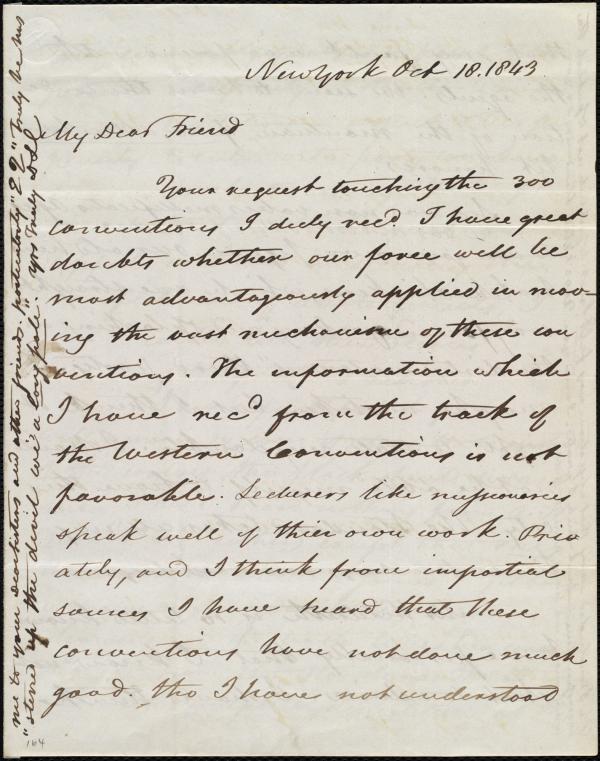 New York Oct 18. 1843
My Dear Friend
Your request touching the 300
conventions I duly recd. I have great
doubts whether our force will be
most advantageously applied in mov-
ing the vast mechanism of these con
ventions. The information which
I have recd from the track of
the Western Conventions is not
favorable. Lecturers like missionaries
speak well of thier own work. Priv
ately, and I think from impartial
sources I have heard that these
conventions have not done much
good. tho I have not understood
me to your dear sisters and other friends, particularly "E Q" Truly he has
"stired up the devil wi' a long pole". Yrs Truly
164